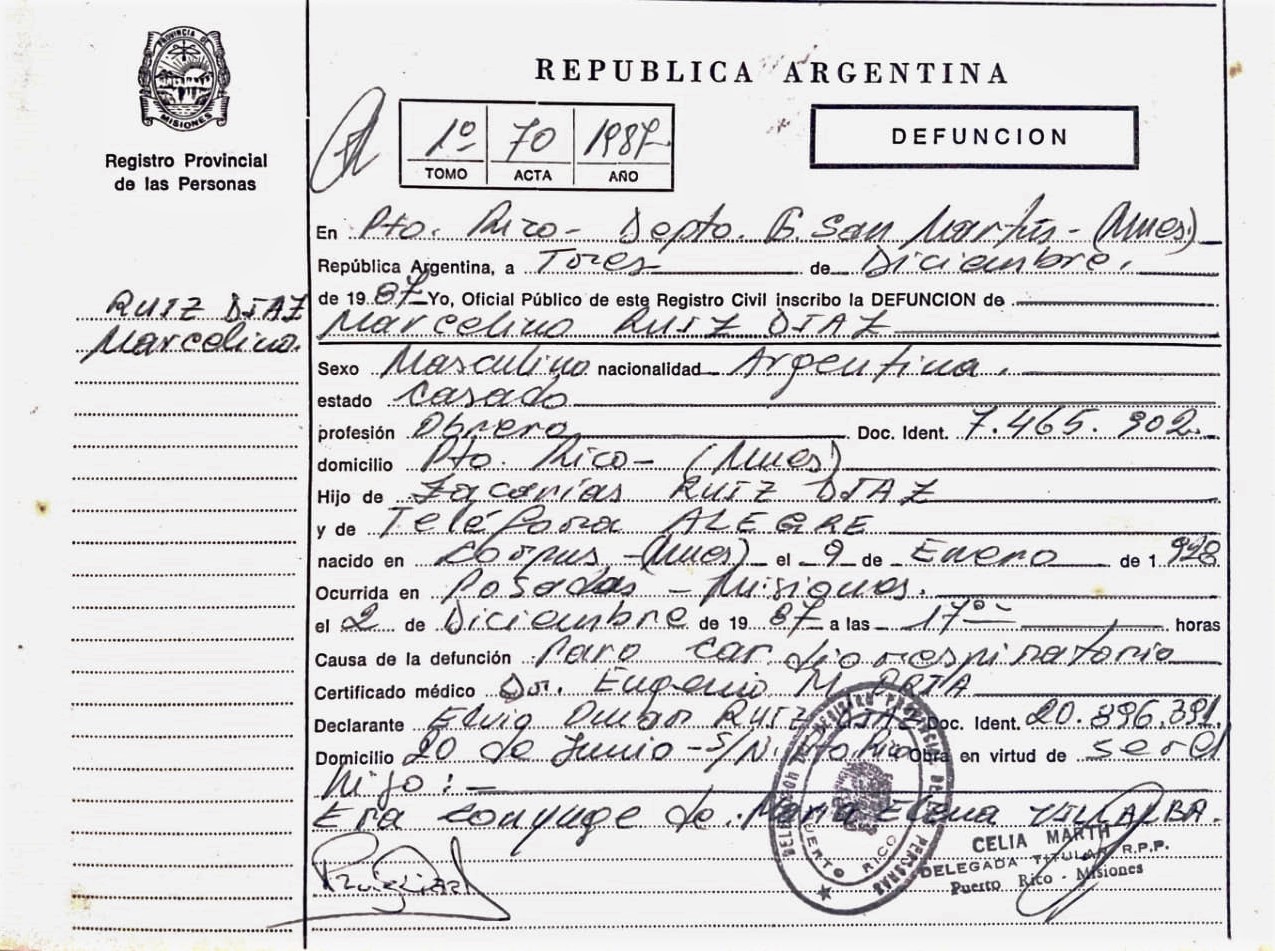 PROVINCIA DE
MISIONES
Registro Provincial
de las Personas
RUIZ DIAZ
Marcelino.
REPUBLICA ARGENTINA
1º 70 1987
TOMO ACTA AÑO
DEFUNCION
En Pto. Rico - Depto. G. San Martín - (Mnes)
República Argentina, a Tres de Diciembre.
de 1987 Yo, Oficial Público de este Registro Civil inscribo la DEFUNCION de
Marcelino RUIZ DIAZ
Sexo Masculino nacionalidad Argentina.
estado Casado
profesión Obrero Doc. Ident. 7.465.902
domicilio Pto. Rico - (Mnes)
Hijo de Zacarías RUIZ DIAZ
y de Teléfora ALEGRE
nacido en Corpus - (Mnes) el 9 de Enero de 1.928
Ocurrida en Posadas - Misiones.
el 2 de Diciembre de 1987 a las 17º horas
Causa de la defunción Paro cardiorespiratorio
Certificado médico Dr. Eugenio M.
Declarante Elvio Omar RUIZ DIAZ Doc. Ident. 20.896.391.
Domicilio 20 de Junio - S/N. Pto Rico Obra en virtud de ser el
hijo: -
Era conyuge de María Elena VILLALBA.
PUERTO RICO
CELIA MARTH
DELEGADA TITULAR R.P.P.
Puerto Rico - Misiones